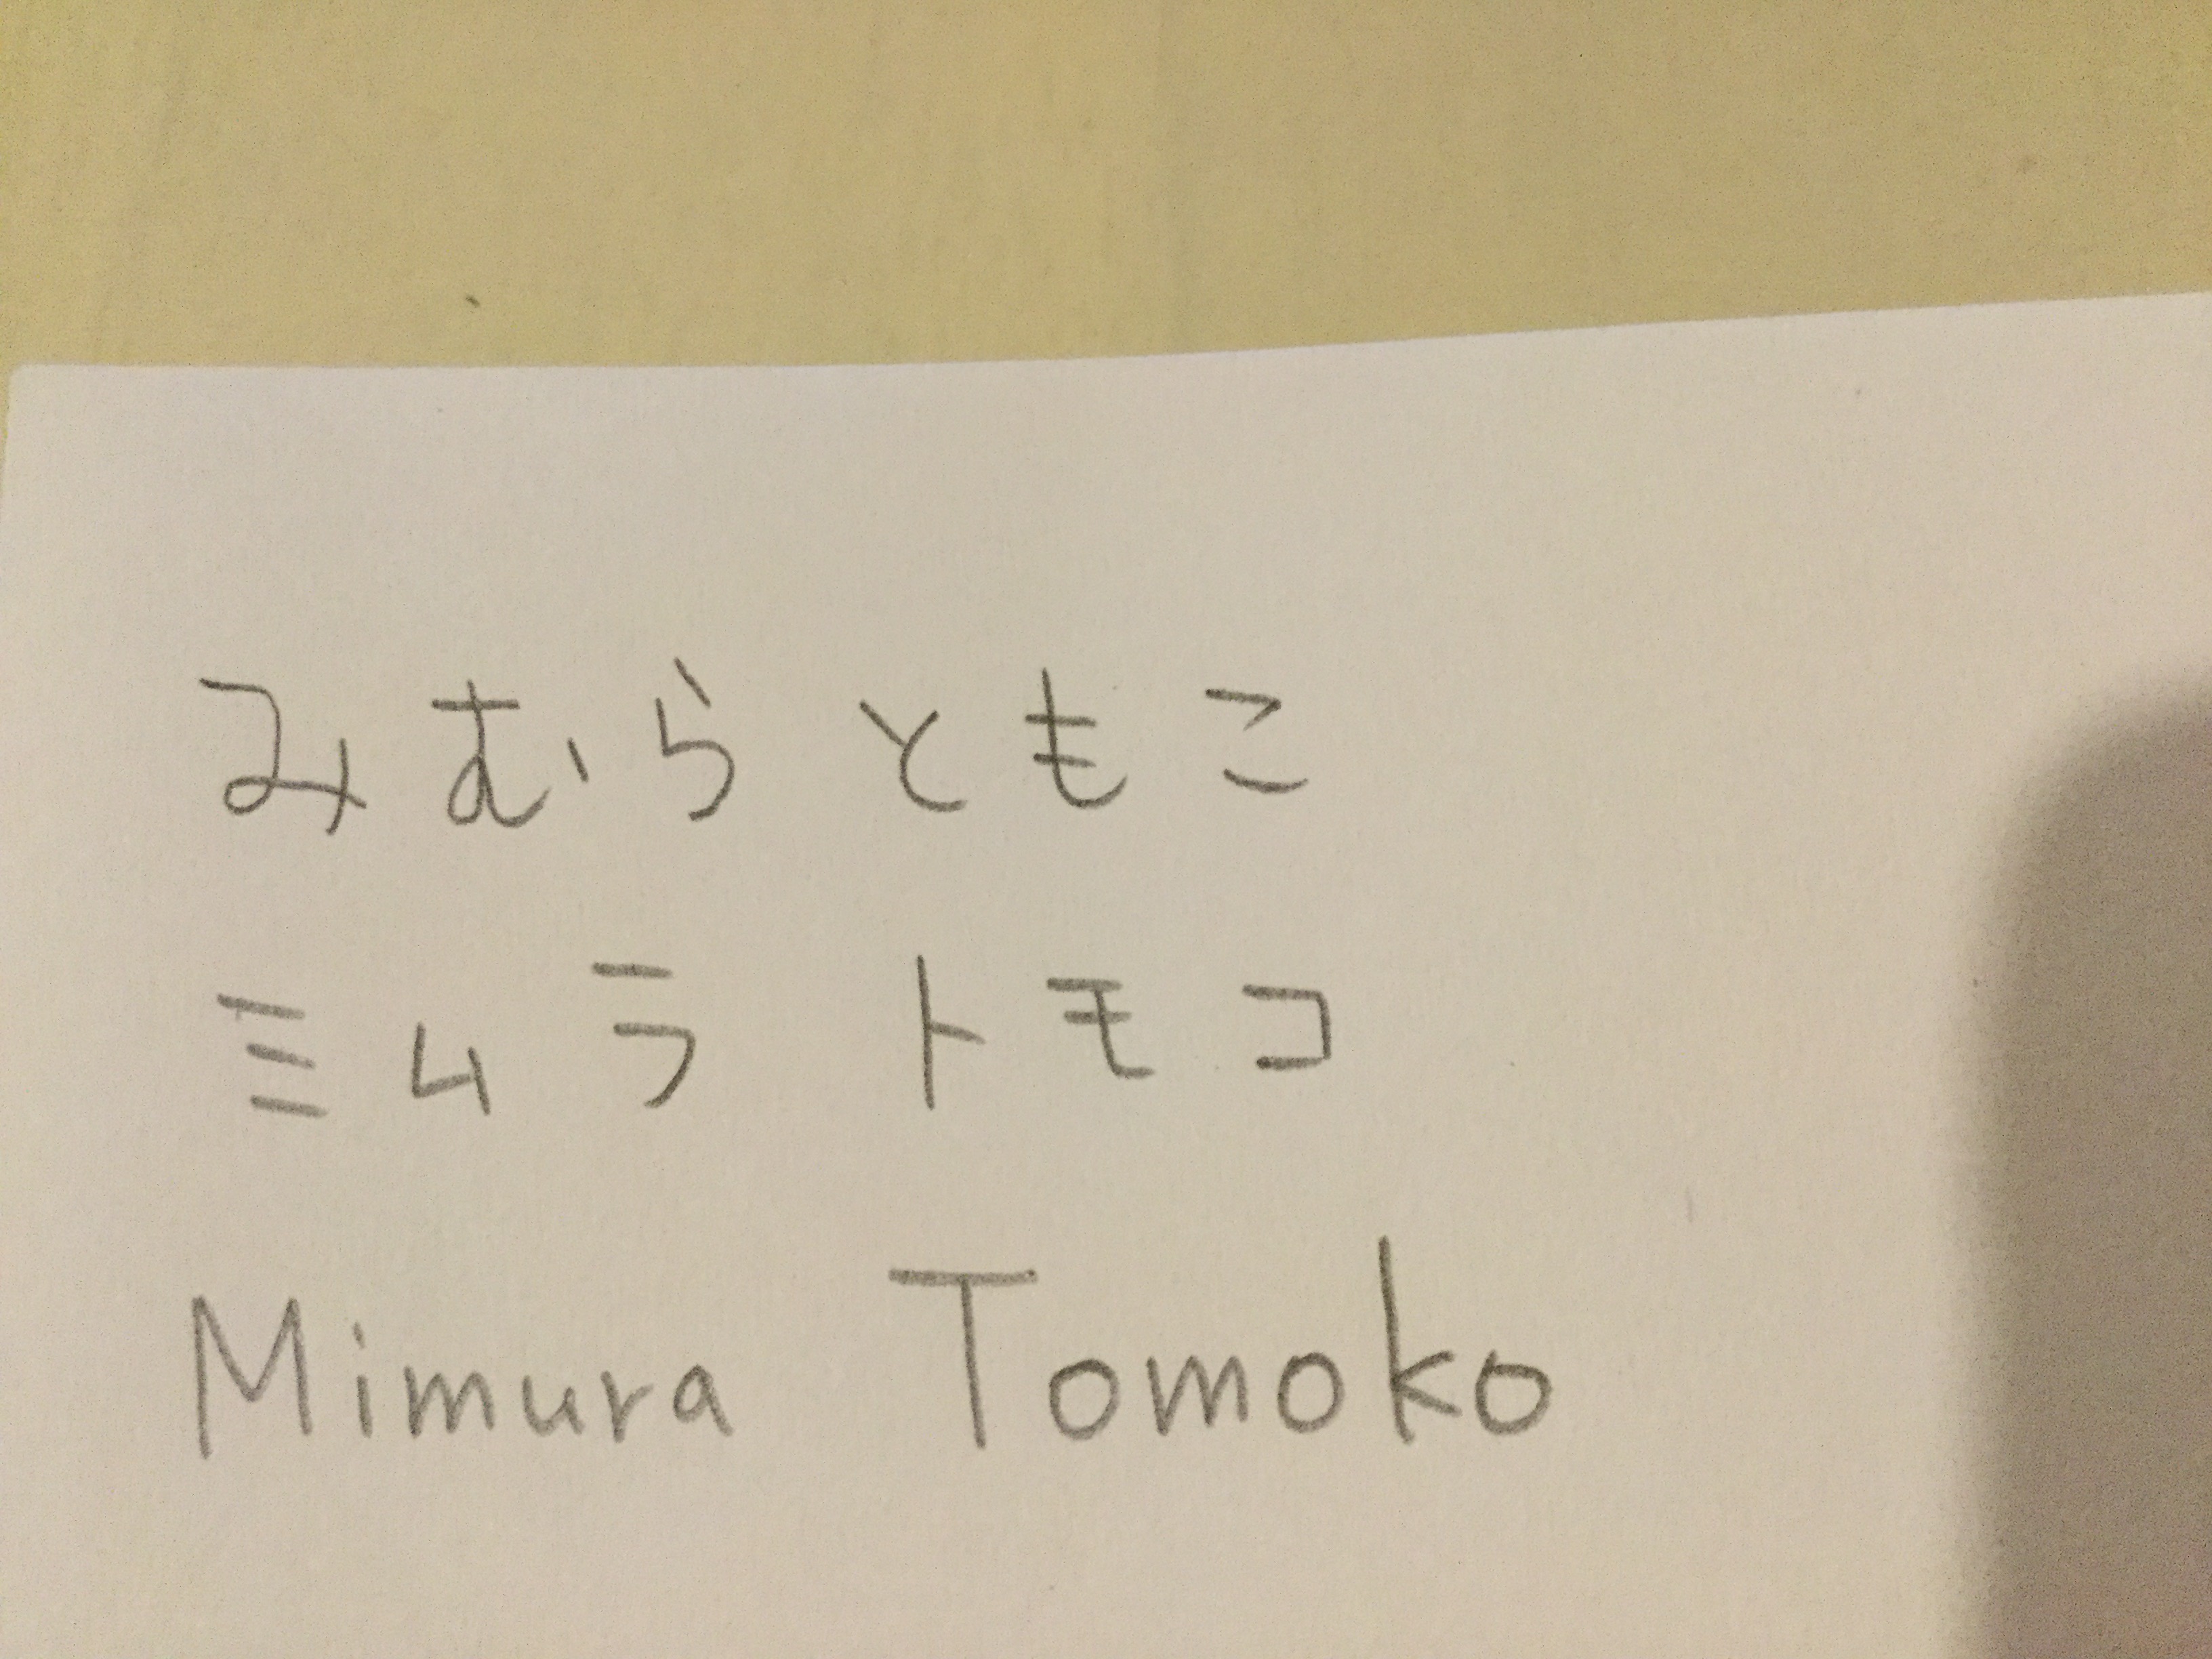 みむら ともこ
ミムラ トモコ
Mimura Tomoko